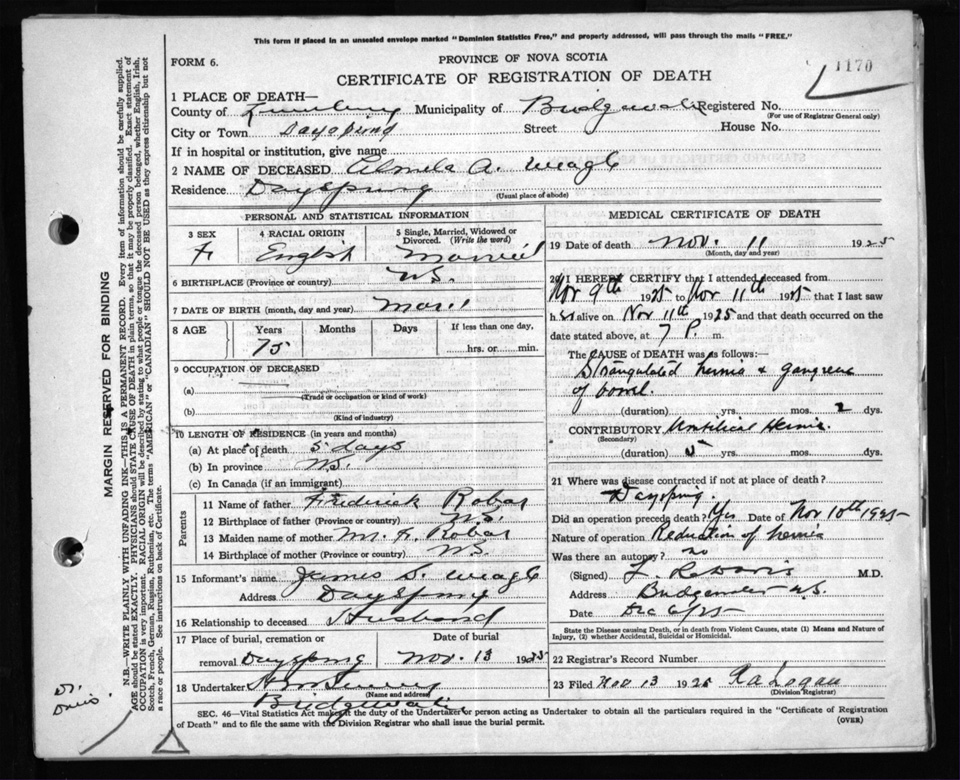 This form if placed in an unsealed envelope marked "Dominion Statistics Free," and properly addressed, will pass through the mails "FREE."
FORM 6.
PROVINCE OF NOVA SCOTIA
1170
CERTIFICATE OF REGISTRATION OF DEATH
1 PLACE OF DEATH—
County of Lunenburg Municipality of Bridgewater Registered No.
(For use of Registrar General only)
City or Town Dayspring Street House No.
If in hospital or institution, give name
2 NAME OF DECEASED A. Weagle
Residence Dayspring
(Usual place of abode)
PERSONAL AND STATISTICAL INFORMATION
3 SEX 4 RACIAL ORIGIN 5 Single, Married, Widowed or Divorced. (Write the word)
F. English Married
6 BIRTHPLACE (Province or country) N.S.
7 DATE OF BIRTH (month, day and year)
8 AGE Years Months Days If less than one day,
75 hrs. or min.
9 OCCUPATION OF DECEASED
(a)
(Trade or occupation or kind of work)
(b)
(Kind of industry)
10 LENGTH OF RESIDENCE (in years and months)
(a) At place of death 5 days
(b) In province N.S.
(c) In Canada (if an immigrant)
Parents
11 Name of father Frederick Robar
12 Birthplace of father (Province or country) N.S.
13 Maiden name of mother M. F. Robar
14 Birthplace of mother (Province or country) N.S.
15 Informant's name James S. Weagle
Address Dayspring
16 Relationship to deceased Husband
17 Place of burial, cremation or Date of burial
removal Dayspring Nov. 13 1925
18 Undertaker
(Name and address)
Bridgewater
MEDICAL CERTIFICATE OF DEATH
19 Date of death Nov. 11 1925
(Month, day and year)
20 I HEREBY CERTIFY that I attended deceased from
Nov 9th 1925 to Nov 11th 1925 that I last saw
h alive on Nov 11th 1925 and that death occurred on
date stated above, at 7 P. m.
The CAUSE OF DEATH was as follows:—
Strangulated hernia & gangrene
of bowel.
(duration) yrs. mos. 2 dys.
CONTRIBUTORY Umbilical Hernia.
(Secondary)
(duration) 5 yrs. mos. dys.
21 Where was disease contracted if not at place of death?
Dayspring.
Did an operation precede death? Yes Date of Nov 10th 1925
Nature of operation Reduction of hernia
Was there an autopsy? no
(Signed) Davis M.D.
Address Bridgewater N.S.
Date Dec 6/25
State the Disease causing Death, or in death from Violent Causes, state (1) Means and Nature of
Injury, (2) whether Accidental, Suicidal or Homicidal.
22 Registrar's Record Number
23 Filed Nov 13 1925 Logan
(Division Registrar)
SEC. 46—Vital Statistics Act makes it the duty of the Undertaker or person acting as Undertaker to obtain all the particulars required in the "Certificate of Registration
of Death" and to file the same with the Division Registrar who shall issue the burial permit.
(OVER)
MARGIN RESERVED FOR BINDING
N.B.—WRITE PLAINLY WITH UNFADING INK—THIS IS A PERMANENT RECORD. Every item of information should be carefully supplied.
AGE should be stated EXACTLY. PHYSICIANS should STATE CAUSE OF DEATH in plain terms, so that it may be properly classified. Exact statement of
OCCUPATION is very important. RACIAL ORIGIN will be described by stating to what people or tongue the deceased person belonged, whether English, Irish,
Scotch, French, German, Russian, Ruthenian, etc. The terms "AMERICAN" or "CANADIAN" SHOULD NOT BE USED as they express citizenship but not
a race or people. See instructions on back of Certificate.
Dr.
Davis